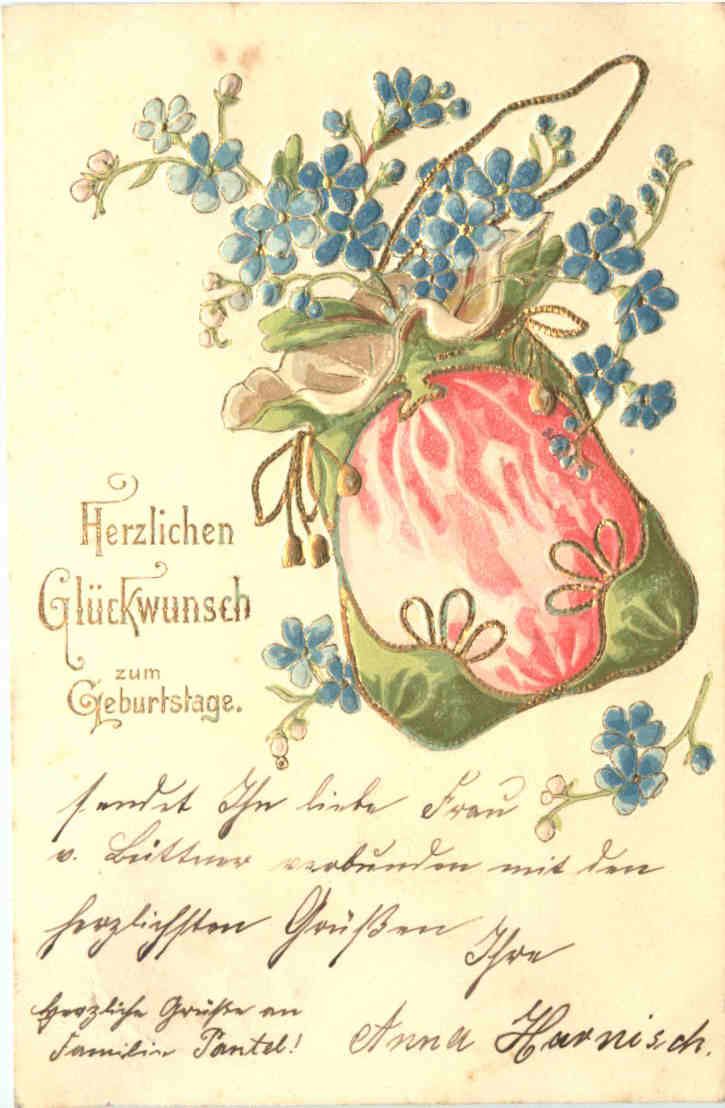 Herzlichen
Glückwunsch
zum
Geburtstage.
sendet Ihn liebe Frau
v. Büttner verbunden mit den
herzlichsten Grüßen
Ihre
Herzliche Grüße an
Familie Pantel!
Anna Harnisch.